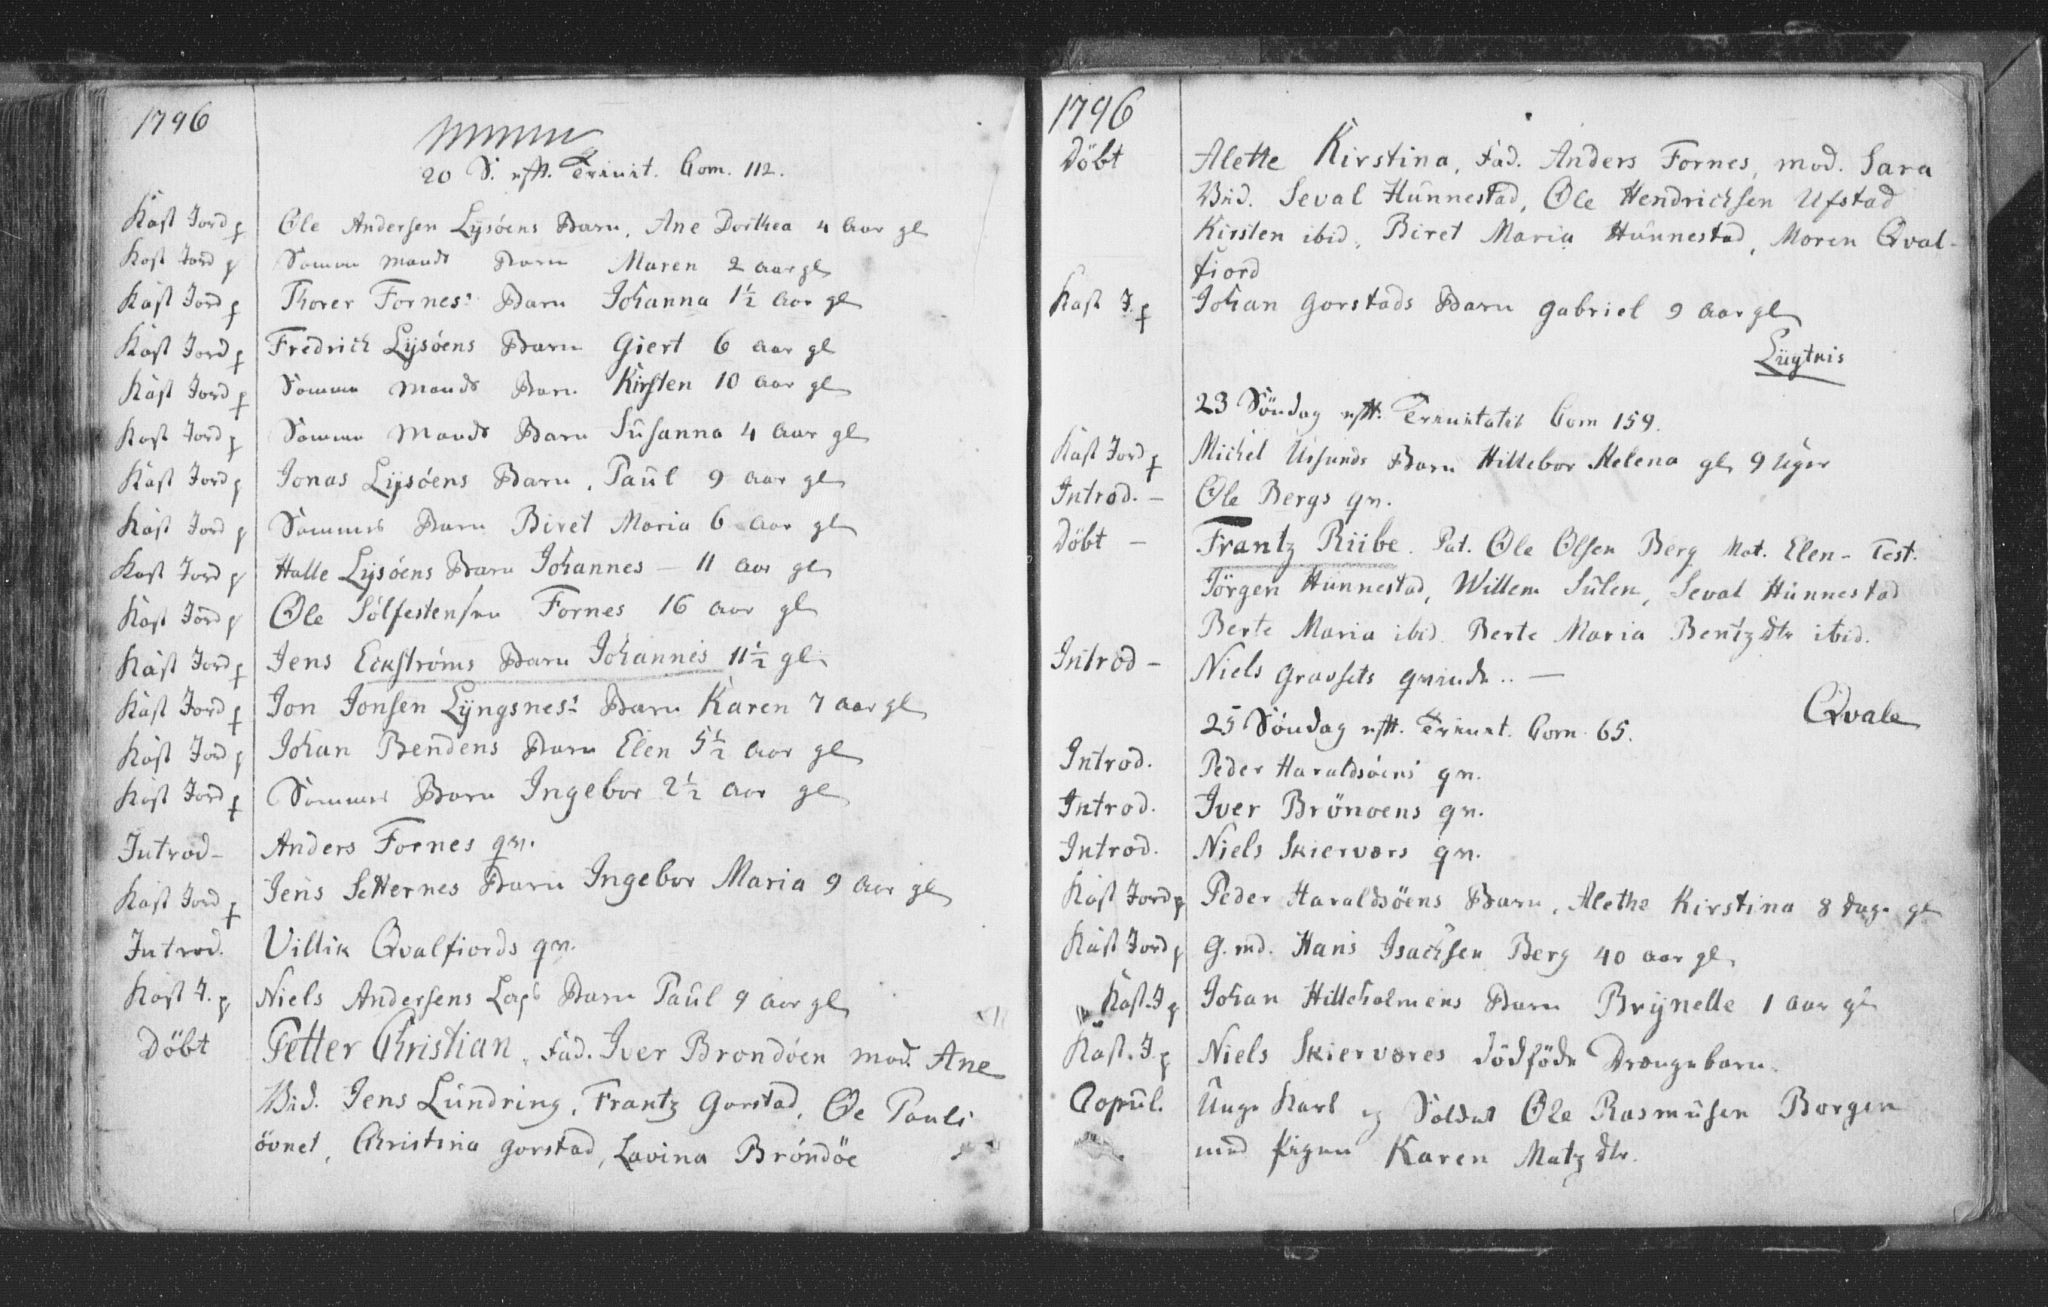 1796
20 S. eftt. Trinit. Com. 112.
Kast Jord p Ole Andersen Lysöens Barn, Ane Dorthea 4 aar gl
Kast Jord p Samme mands Barn Maren 2 aar gl
Kast Jord p Thorer Fornes: Barn Johanna 1½ aar gl
Kast Jord p Fredrich Lysöens Barn Giert 6 aar gl
Kast Jord p Samme Mands Barn Kirsten 10 aar gl
Kast Jord p Samme Mands Barn Susanna 4 aar gl
Kast Jord p Jonas Lysöens Barn, Paul 9 aar gl
Kast Jord p Sammes Barn Biret Maria 6 aar gl
Kast Jord p Halle Lysöens Barn Johannes – 11 aar gl
Kast Jord p Ole Solfestensen Fornes 16 aar gl
Kast Jord p Jens Eckströms Barn Johannes 11½ gl
Kast Jord p Jon Jonsen Lyngsnes: Barn Karen 7 aar gl
Kast Jord p Johan Bendens Barn Elen 5½ aar gl
Kast Jord p Sammes Barn Ingebor 2½ aar gl
Introd – Anders Fornes qn.
Kast Jord p Jens Setternes Barn Ingebor Maria 9 aar gl
Introd. Villik Qvalfiords qn.
Kast J. p Niels Andersens Barn Paul 9 aar gl
Döbt Petter Christian, Fad. Iver Brondöen mod. Ane
Vid. Jens Lundring, Frantz Gorstad, Ole Pauls
övnet, Christina Gorstad, Lavina Bröndöe
1796
Döbt Alette Kirstina, Fad. Anders Fornes, mod. Sara
Vid. Seval Hunnestad, Ole Hendrichsen Ufstad
Kirsten ibid, Biret Maria Hunnestad, Maren Qval-
fiord
Kast J. p Johan Gorstads Barn Gabriel 9 aar gl
Lygtnis
23 Söndag eftt. Trinitatis Com 159.
Kast Jord p Michel Ursunds Barn Hillebor Helena gl 9 Uger
Introd. – Ole Bergs qn.
Döbt – Frantz Riibe. Pat. Ole Olsen Berg Mat. Elen – Test.
Jörgen Hunnestad, Willem Sulen, Seval Hunnestad
Berte Maria ibid. Berte Maria Bentz dtr ibid.
Introd – Niels Gravsets qvinde .. –
Qvale
25 Söndag eftt. Trinit. Com. 65.
Introd. Peder Haraldsöens qn.
Introd. Iver Brönoens qn.
Introd. Niels Skierværs qn.
Kast Jord p Peder Haraldsöens Barn, Alethe Kirstina 8 dage gl
Kast Jord p G. md. Hans Isachsen Berg 40 aar gl
Kast. J p Johan Hilleholmens Barn Brynelle 1 aar gl
Kast. J. p Niels Skierværes dödföde Drængebarn.
Copul. Unge Karl og Soldat Ole Rasmusen Borgen
med Pigen Karen Matz dtr.